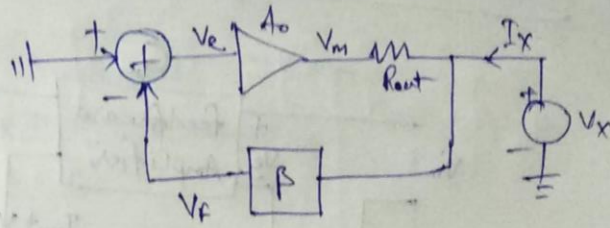 + + Ve A₀ Vm Rout Ix
− + Vx −
VF β